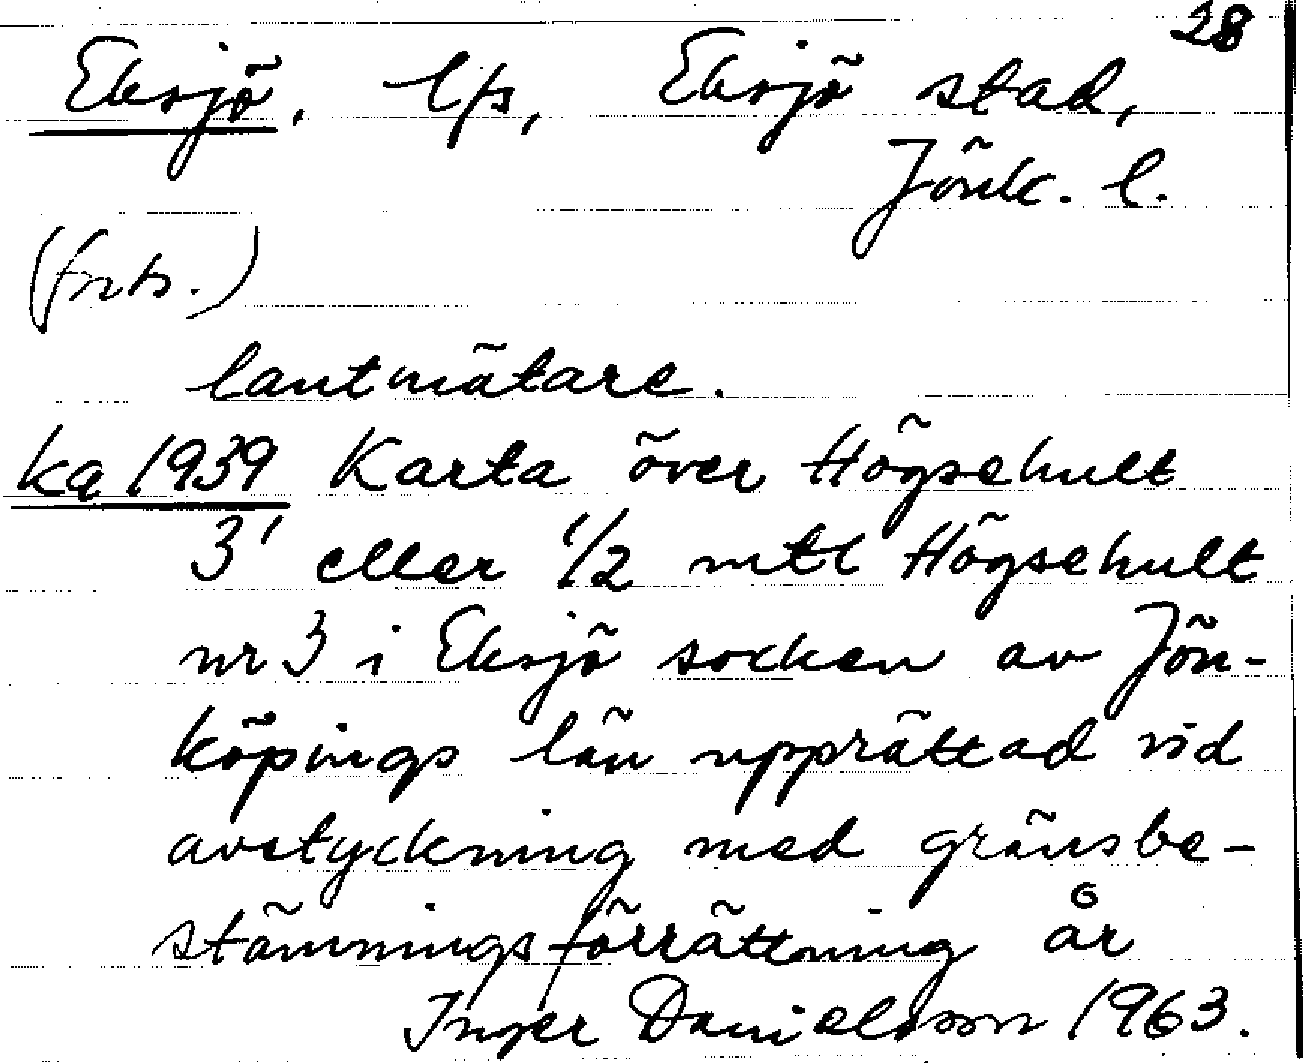 28
Eksjö, lps, Eksjö stad,
Jönk. l.
(forts.)
lantmätare.
ka 1939 Karta över Högsehult
3¹ eller 1/2 mtl Högsehult
nr 3 i Eksjö socken av Jön-
köpings län upprättad vid
avstyckning med gränsbe-
stämningsförrättning år
Inger Danielsson 1963.